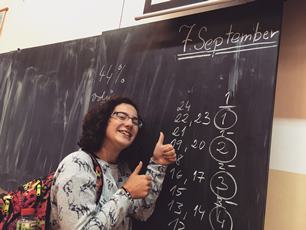 7. September
44 %
1
24
22, 23 1
21
19, 20 2
18
16, 17 3
15
13, 14 4